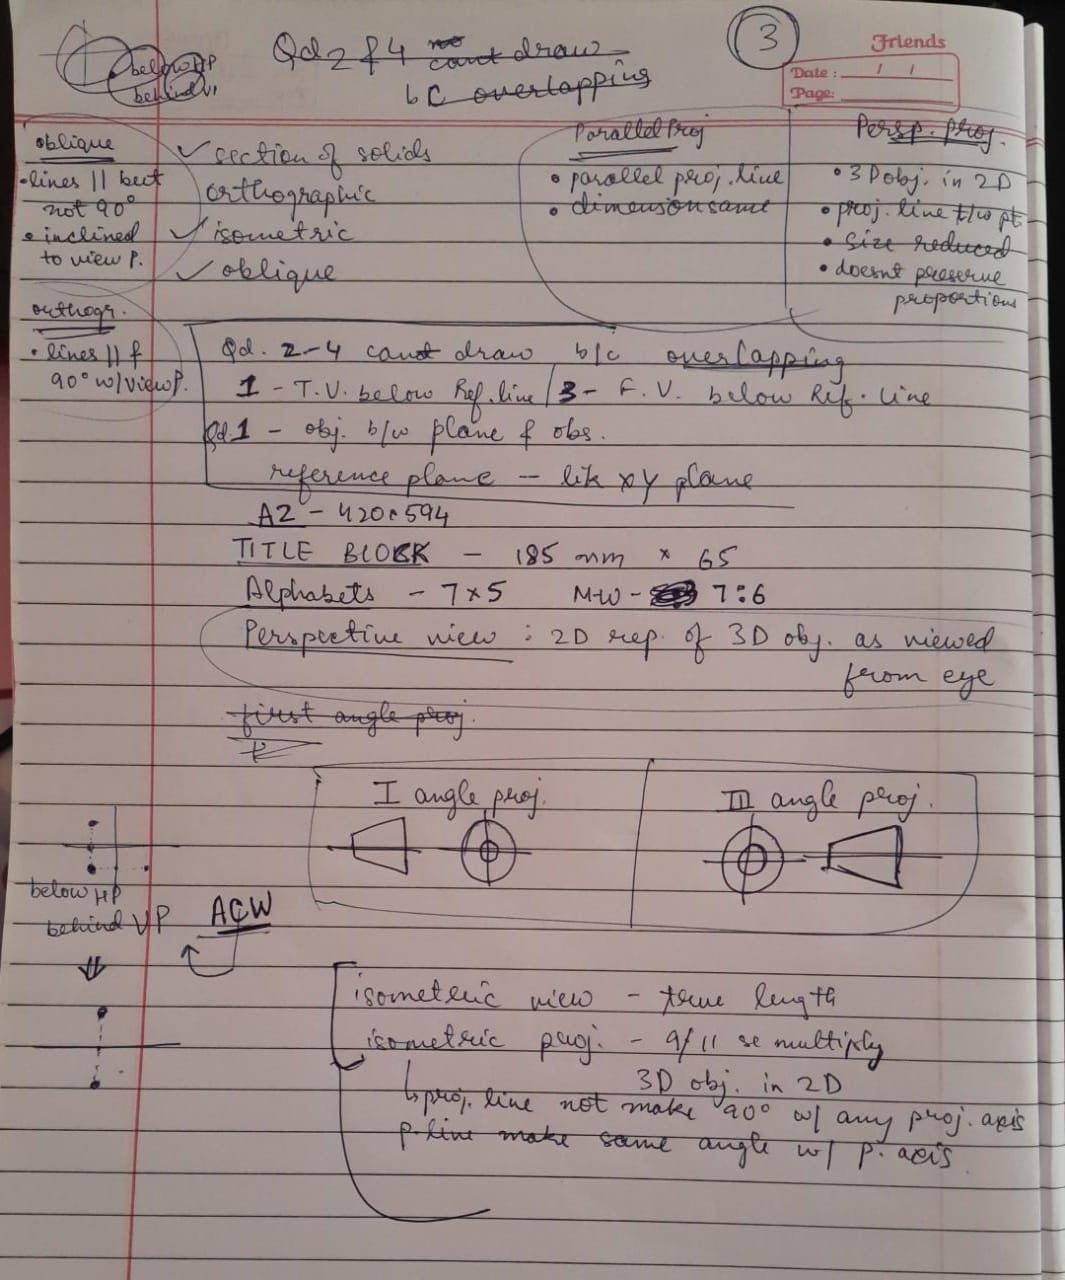 3
Friends
Date : / /
Page:
Qd 2 & 4 cant draw
bc overlapping
below HP
behind VP
oblique
• lines || but
not 90°
• inclined
to view P.
orthogr.
• lines || &
90° w/ view P.
✓ section of solids
orthographic
✓ isometric
✓ oblique
Parallel Proj
• parallel proj. line
• dimension same
Persp. proj.
• 3D obj. in 2D
• proj. line t/w pt
• size reduced
• doesnt preserve
proportions
Qd. 2-4 cant draw b/c overlapping
1 - T.V. below Ref. line / 3 - F.V. below Ref. line
Qd.1 - obj. b/w plane & obs.
reference plane - lik xy plane
A2 - 420 594
TITLE BLOCK - 185 mm × 65
Alphabets - 7×5 M-W - 7:6
Perspective view : 2D rep. of 3D obj. as viewed
from eye
first angle proj.
I angle proj.
III angle proj.
below HP
behind VP
ACW
isometric view - true length
isometric proj. - 9/11 se multiply
3D obj. in 2D
↳ proj. line not make 90° w/ any proj. axis
p. line make same angle w/ p. axis